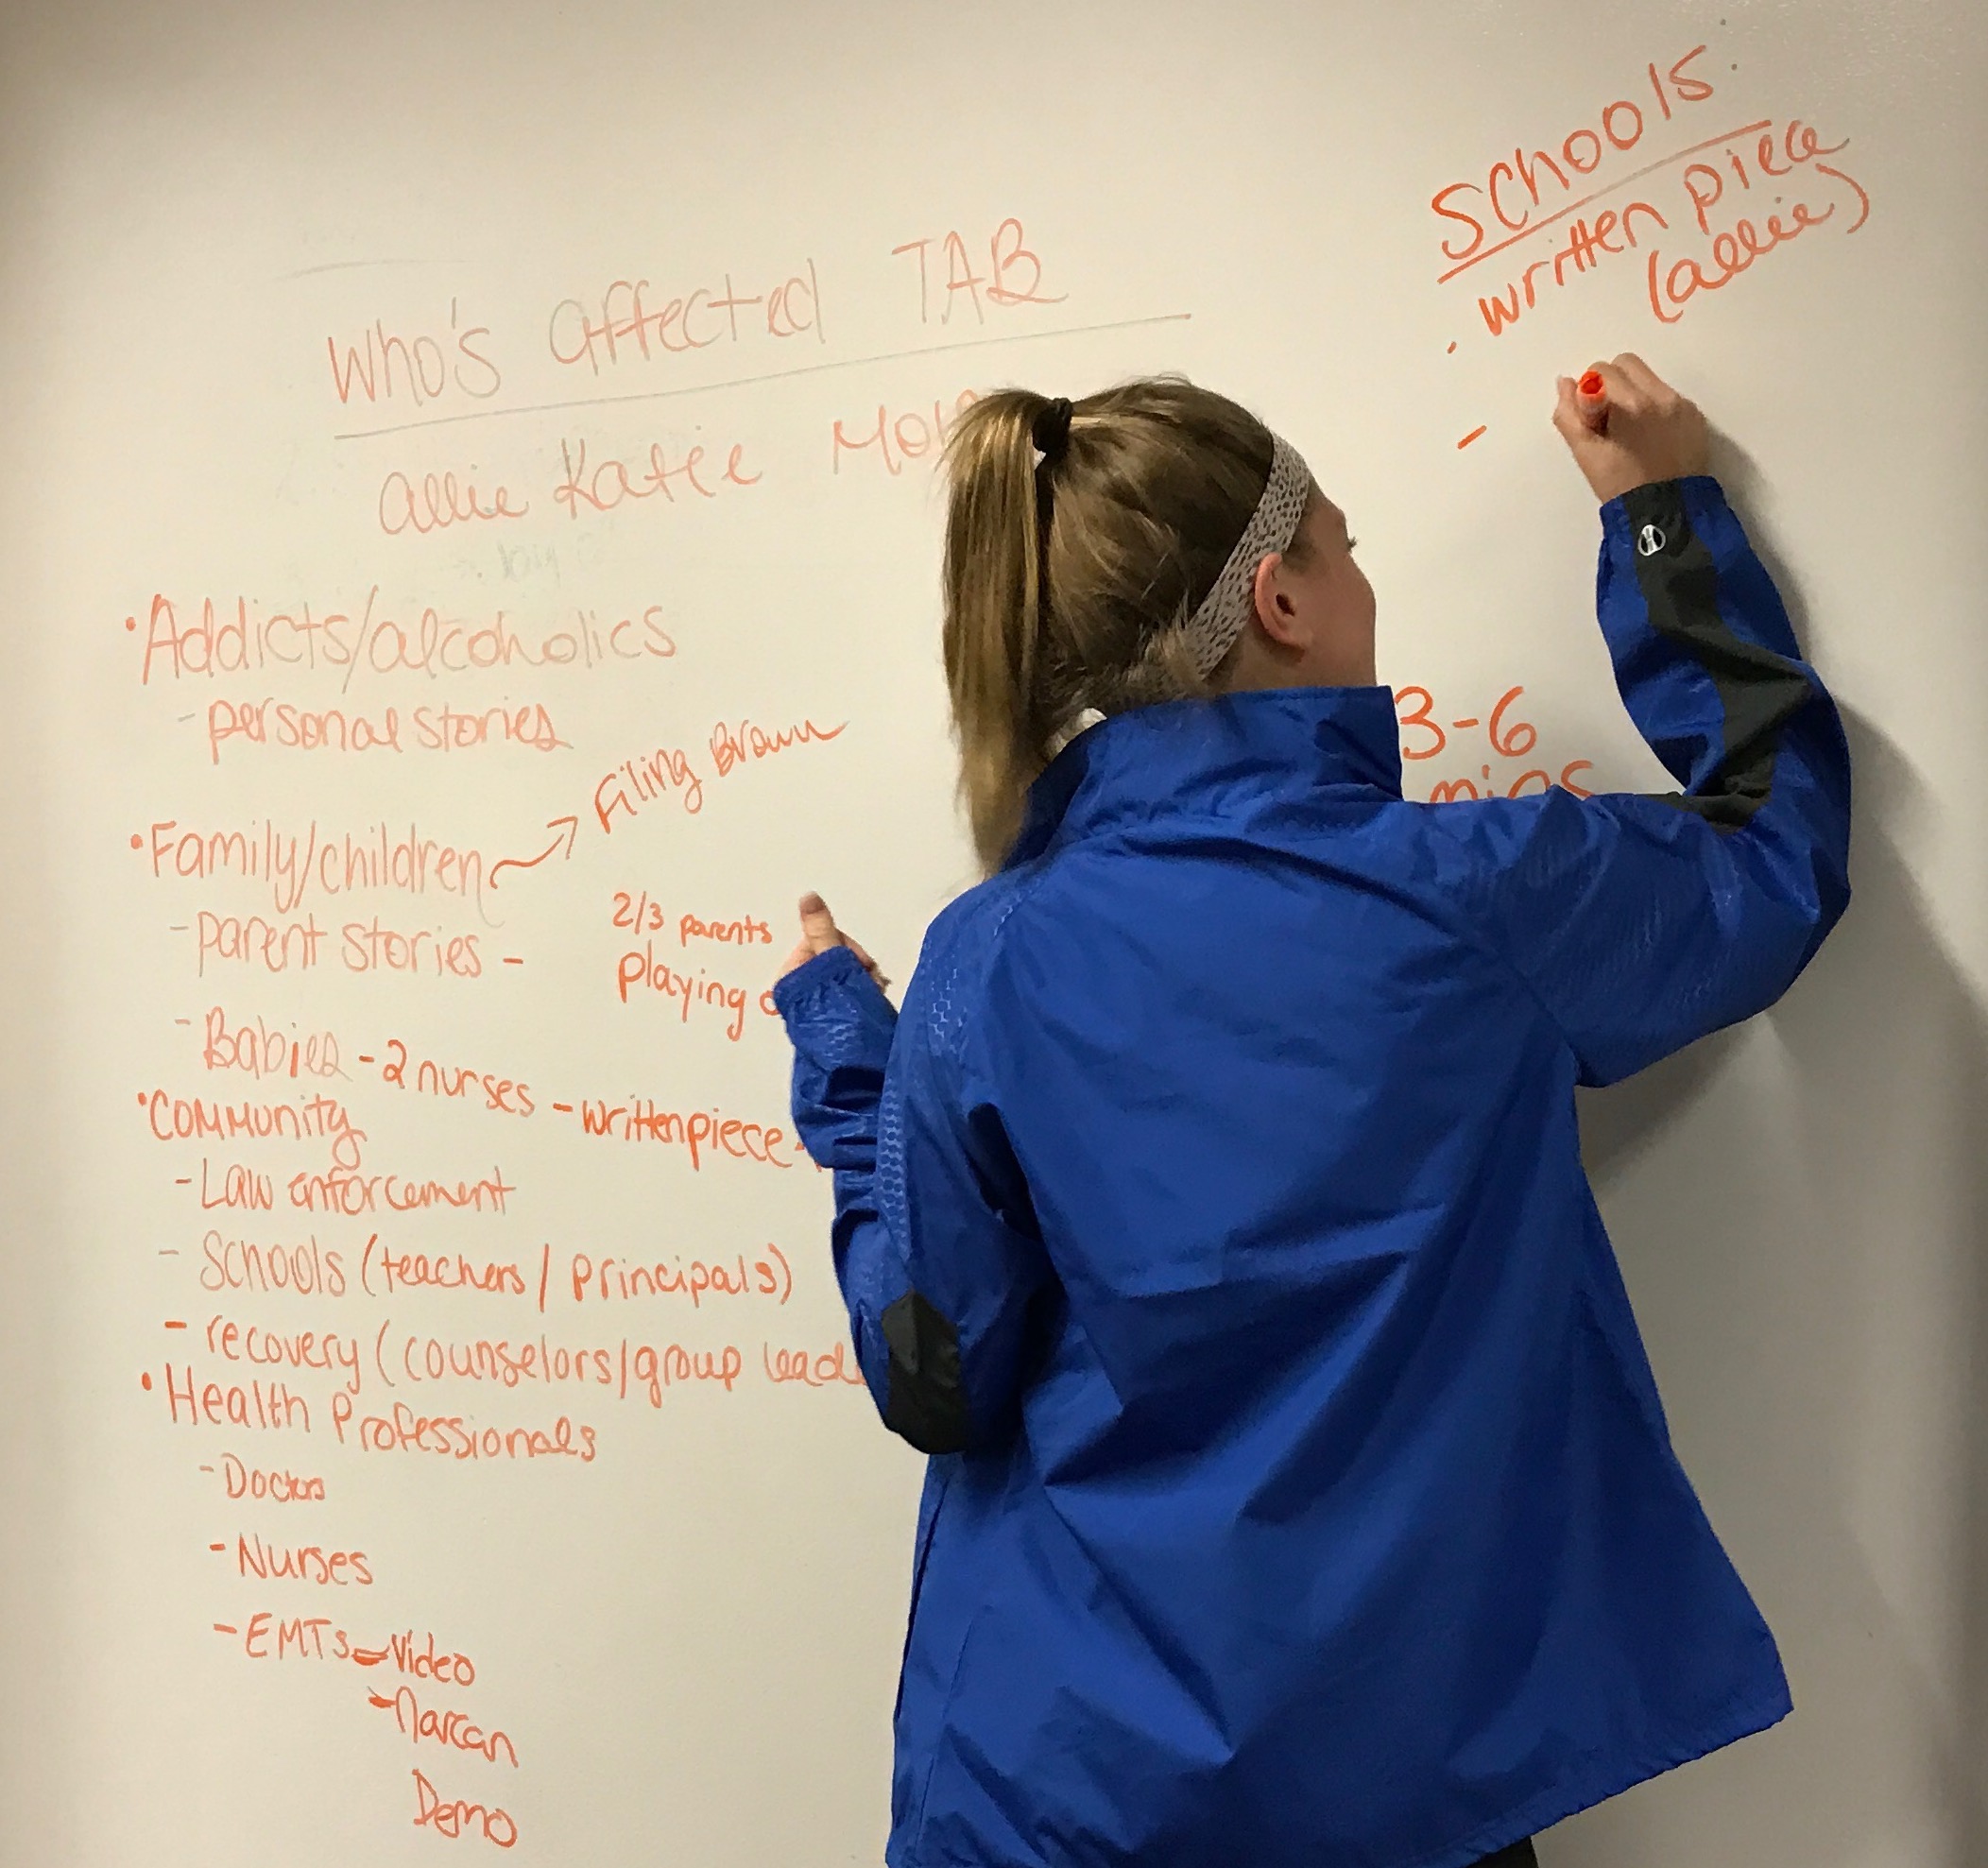 Who's affected TAB
allie Katie
• Addicts/alcoholics
- personal stories
• Family/children → Filing Brown
- parent stories -
2/3 parents
playing
- Babies - 2 nurses - written piece -
• Community
- Law enforcement
- Schools (teachers / principals)
- recovery (counselors/group
• Health Professionals
- Doctors
- Nurses
- EMTs - Video
- Narcan
Demo
Schools
• written piece
(allie)
-
3-6
mins